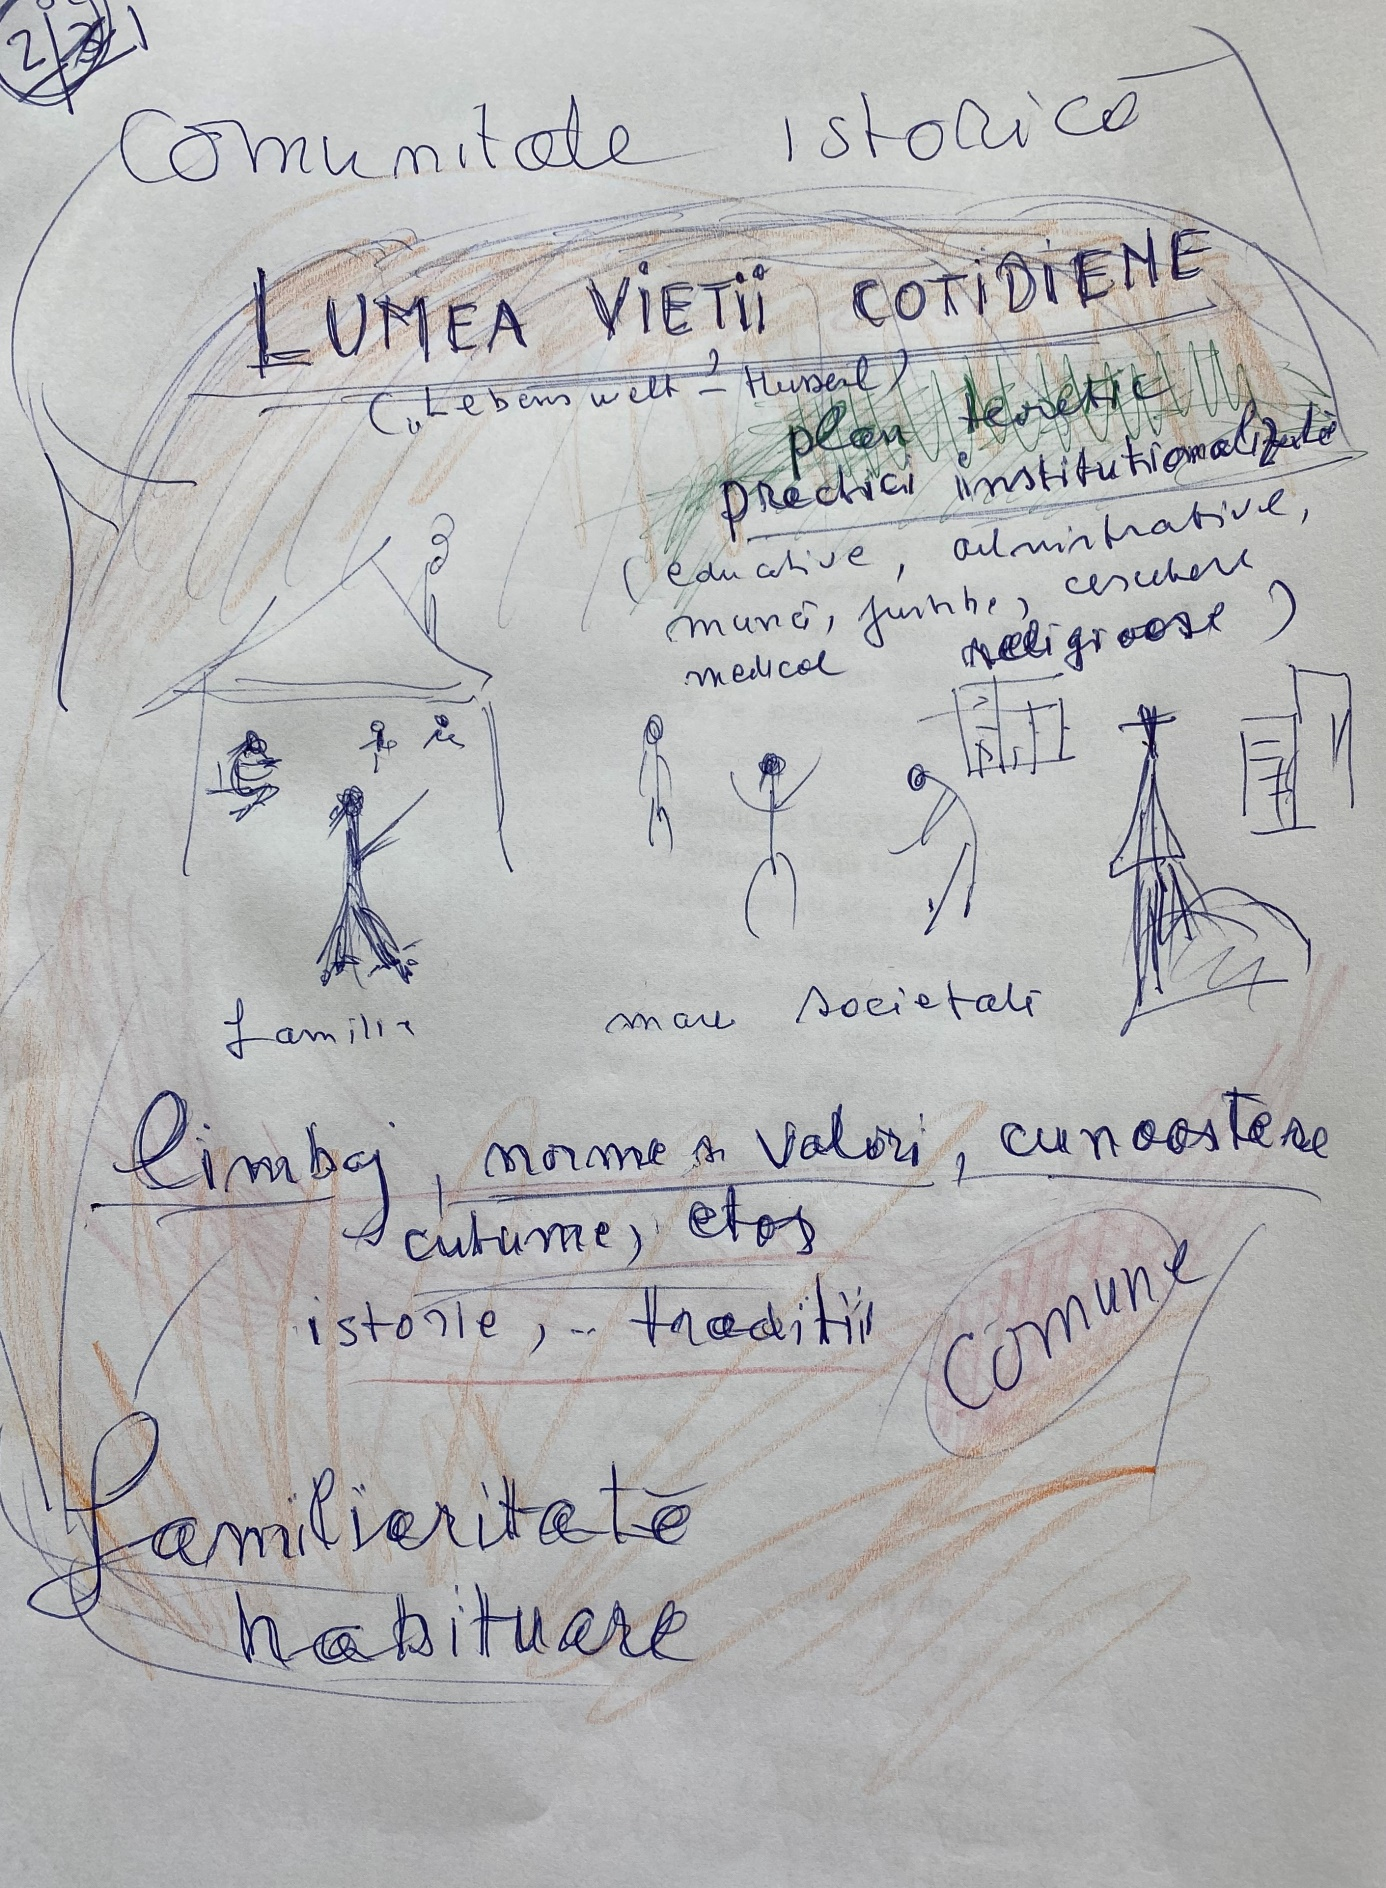 Comunitate istorică
LUMEA VIEȚII COTIDIENE
(„Lebenswelt” – Husserl)
plan teoretic
practici instituționalizate
(educative, administrative,
muncă, juridice, cercetare
medical religioase)
familia
mari societăți
limbaj, norme și valori, cunoaștere
cutume, etos
istorie, .. tradiții
comune
familiaritate
habituare